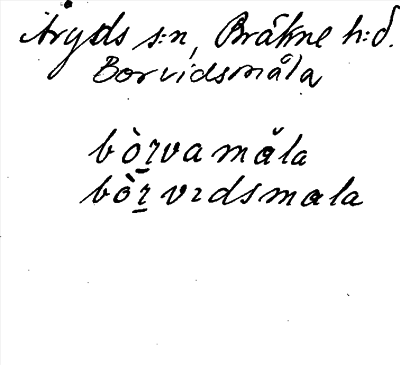 Åryds s:n, Bräkne h:d.
Borvidsmåla
bò̱ɽvamåla
bò̱ɽvɪdsmala